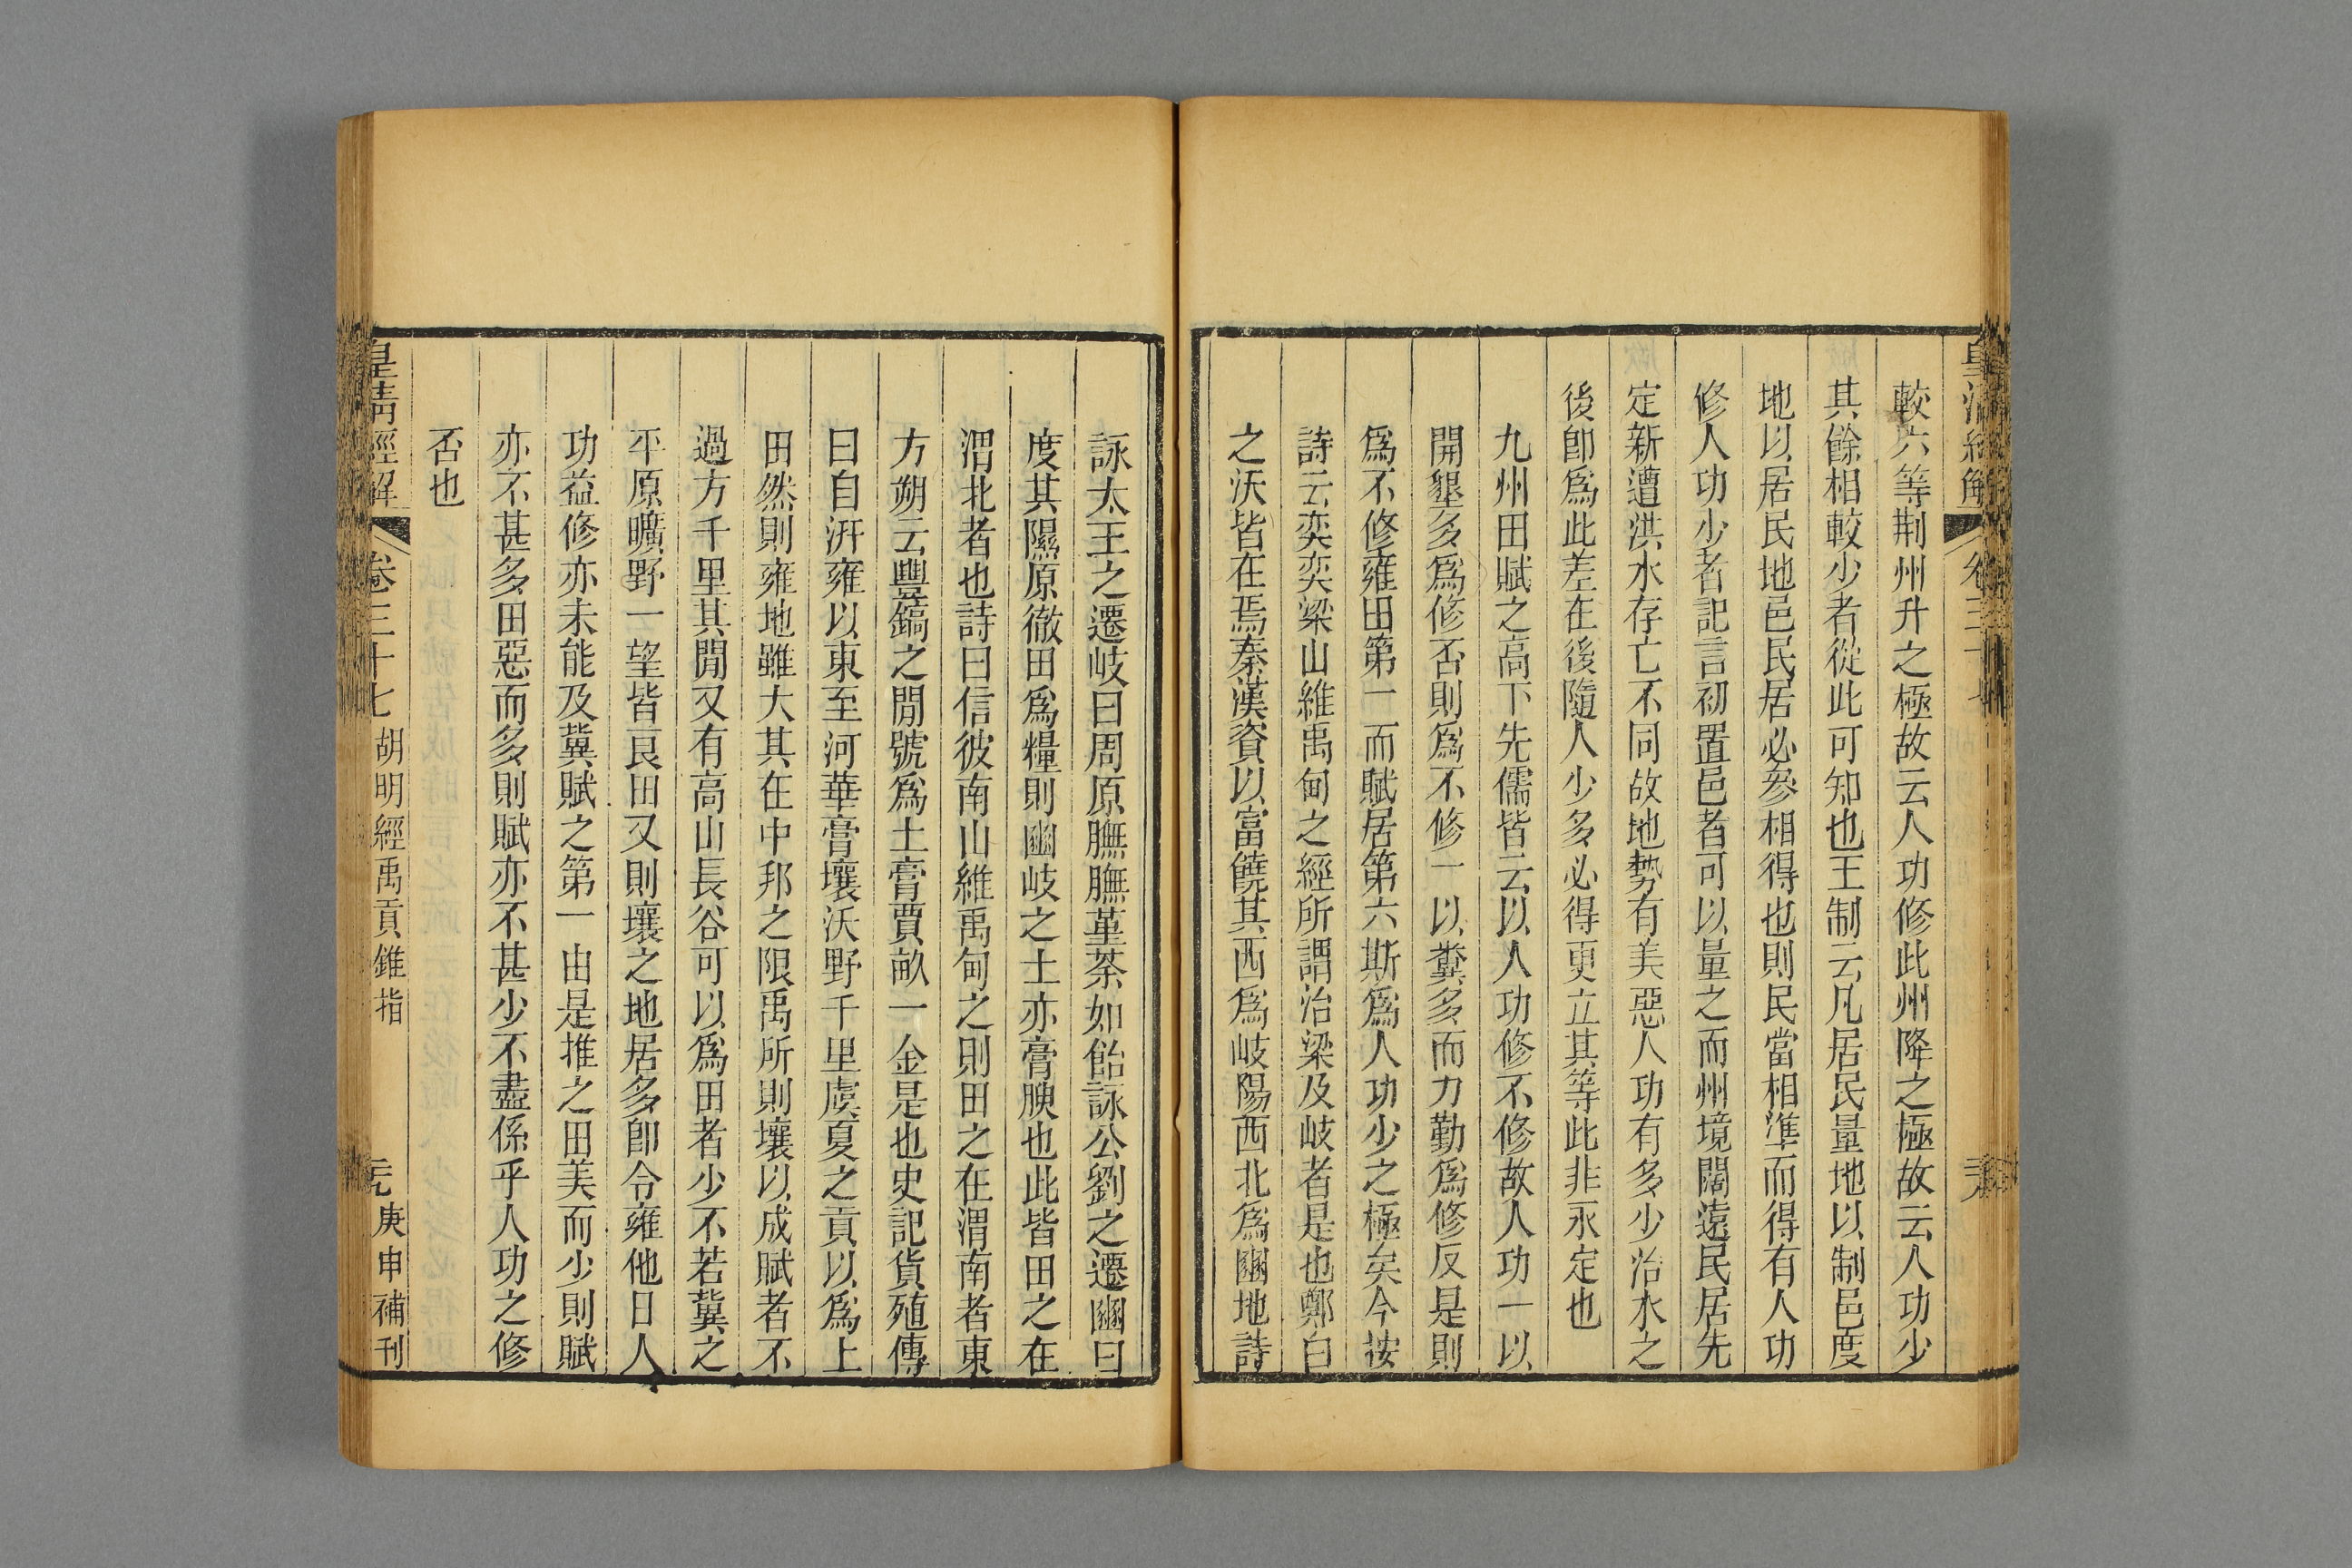 較六等荆州升之極故云人功修此州降之極故云人功少
其餘相較少者從此可知也王制云凡居民量地以制邑度
地以居民地邑民居必參相得也則民當相準而得有人功
修人功少者記言初置邑者可以量之而州境闊遠民居先
定新遭洪水存亡不同故地勢有美惡人功有多少治水之
後卽爲此差在後隨人少多必得更立其等此非永定也
九州田賦之高下先儒皆云以人功修不修故人功一以
開墾多爲修否則爲不修一以糞多而力勤爲修反是則
爲不修雍田第一而賦居第六斯爲人功少之極矣今按
詩云奕奕梁山維禹甸之經所謂治梁及岐者是也鄭白
之沃皆在焉秦漢資以富饒其西爲岐陽西北爲豳地詩
詠太王之遷岐曰周原膴膴菫荼如飴詠公劉之遷豳曰
度其隰原徹田爲糧則豳岐之土亦膏腴也此皆田之在
渭北者也詩曰信彼南山維禹甸之則田之在渭南者東
方朔云豐鎬之閒號爲土膏賈畝一金是也史記貨殖傳
曰自汧雍以東至河華膏壤沃野千里虞夏之貢以爲上
田然則雍地雖大其在中邦之限禹所則壤以成賦者不
過方千里其閒又有高山長谷可以爲田者少不若冀之
平原曠野一望皆良田又則壤之地居多卽令雍他日人
功益修亦未能及冀賦之第一由是推之田美而少則賦
亦不甚多田惡而多則賦亦不甚少不盡係乎人功之修
否也
皇清經解 卷三十七 胡明經禹貢錐指 庚申補刊